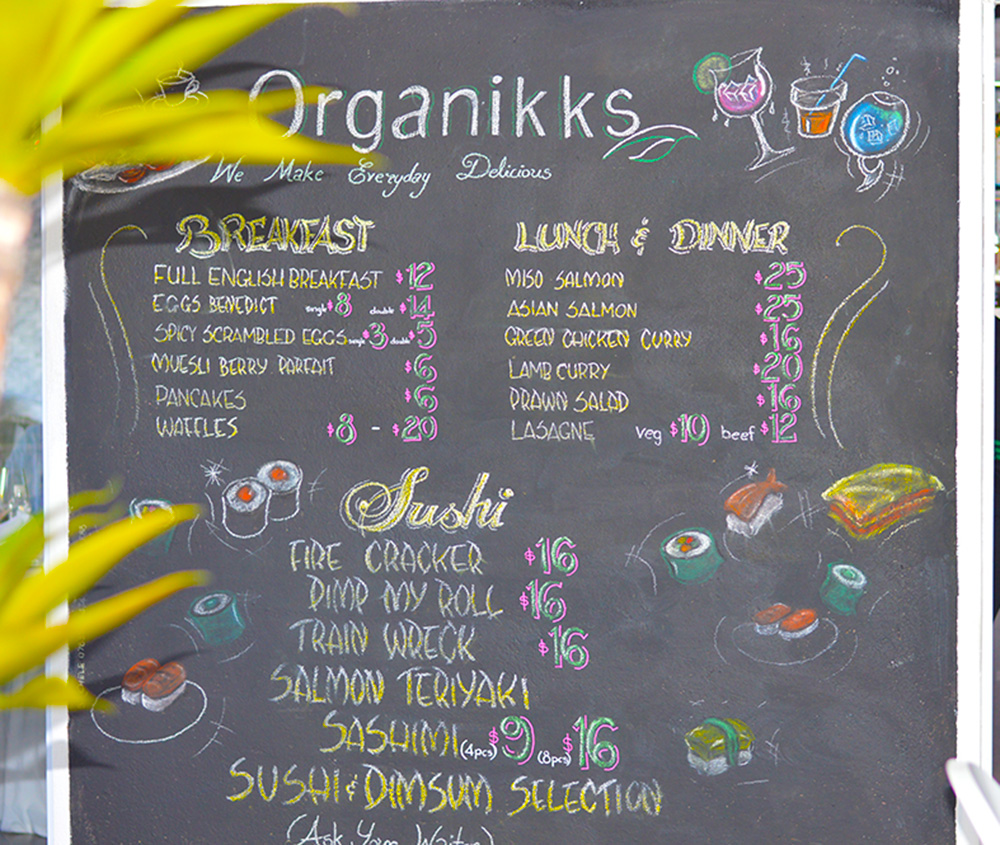 Organikks
We Make Everyday Delicious
BREAKFAST
FULL ENGLISH BREAKFAST $12
EGGS BENEDICT single $8 double $14
SPICY SCRAMBLED EGGS single $3 double $5
MUESLI BERRY PARFAIT $6
PANCAKES $6
WAFFLES $8 - $20
LUNCH & DINNER
MISO SALMON $25
ASIAN SALMON $25
GREEN CHICKEN CURRY $16
LAMB CURRY $20
PRAWN SALAD $16
LASAGNE veg $10 beef $12
Sushi
FIRE CRACKER $16
PIMP MY ROLL $16
TRAIN WRECK $16
SALMON TERIYAKI
SASHIMI (4pcs) $9 (8pcs) $16
SUSHI & DIMSUM SELECTION
(Ask Your Waiter)